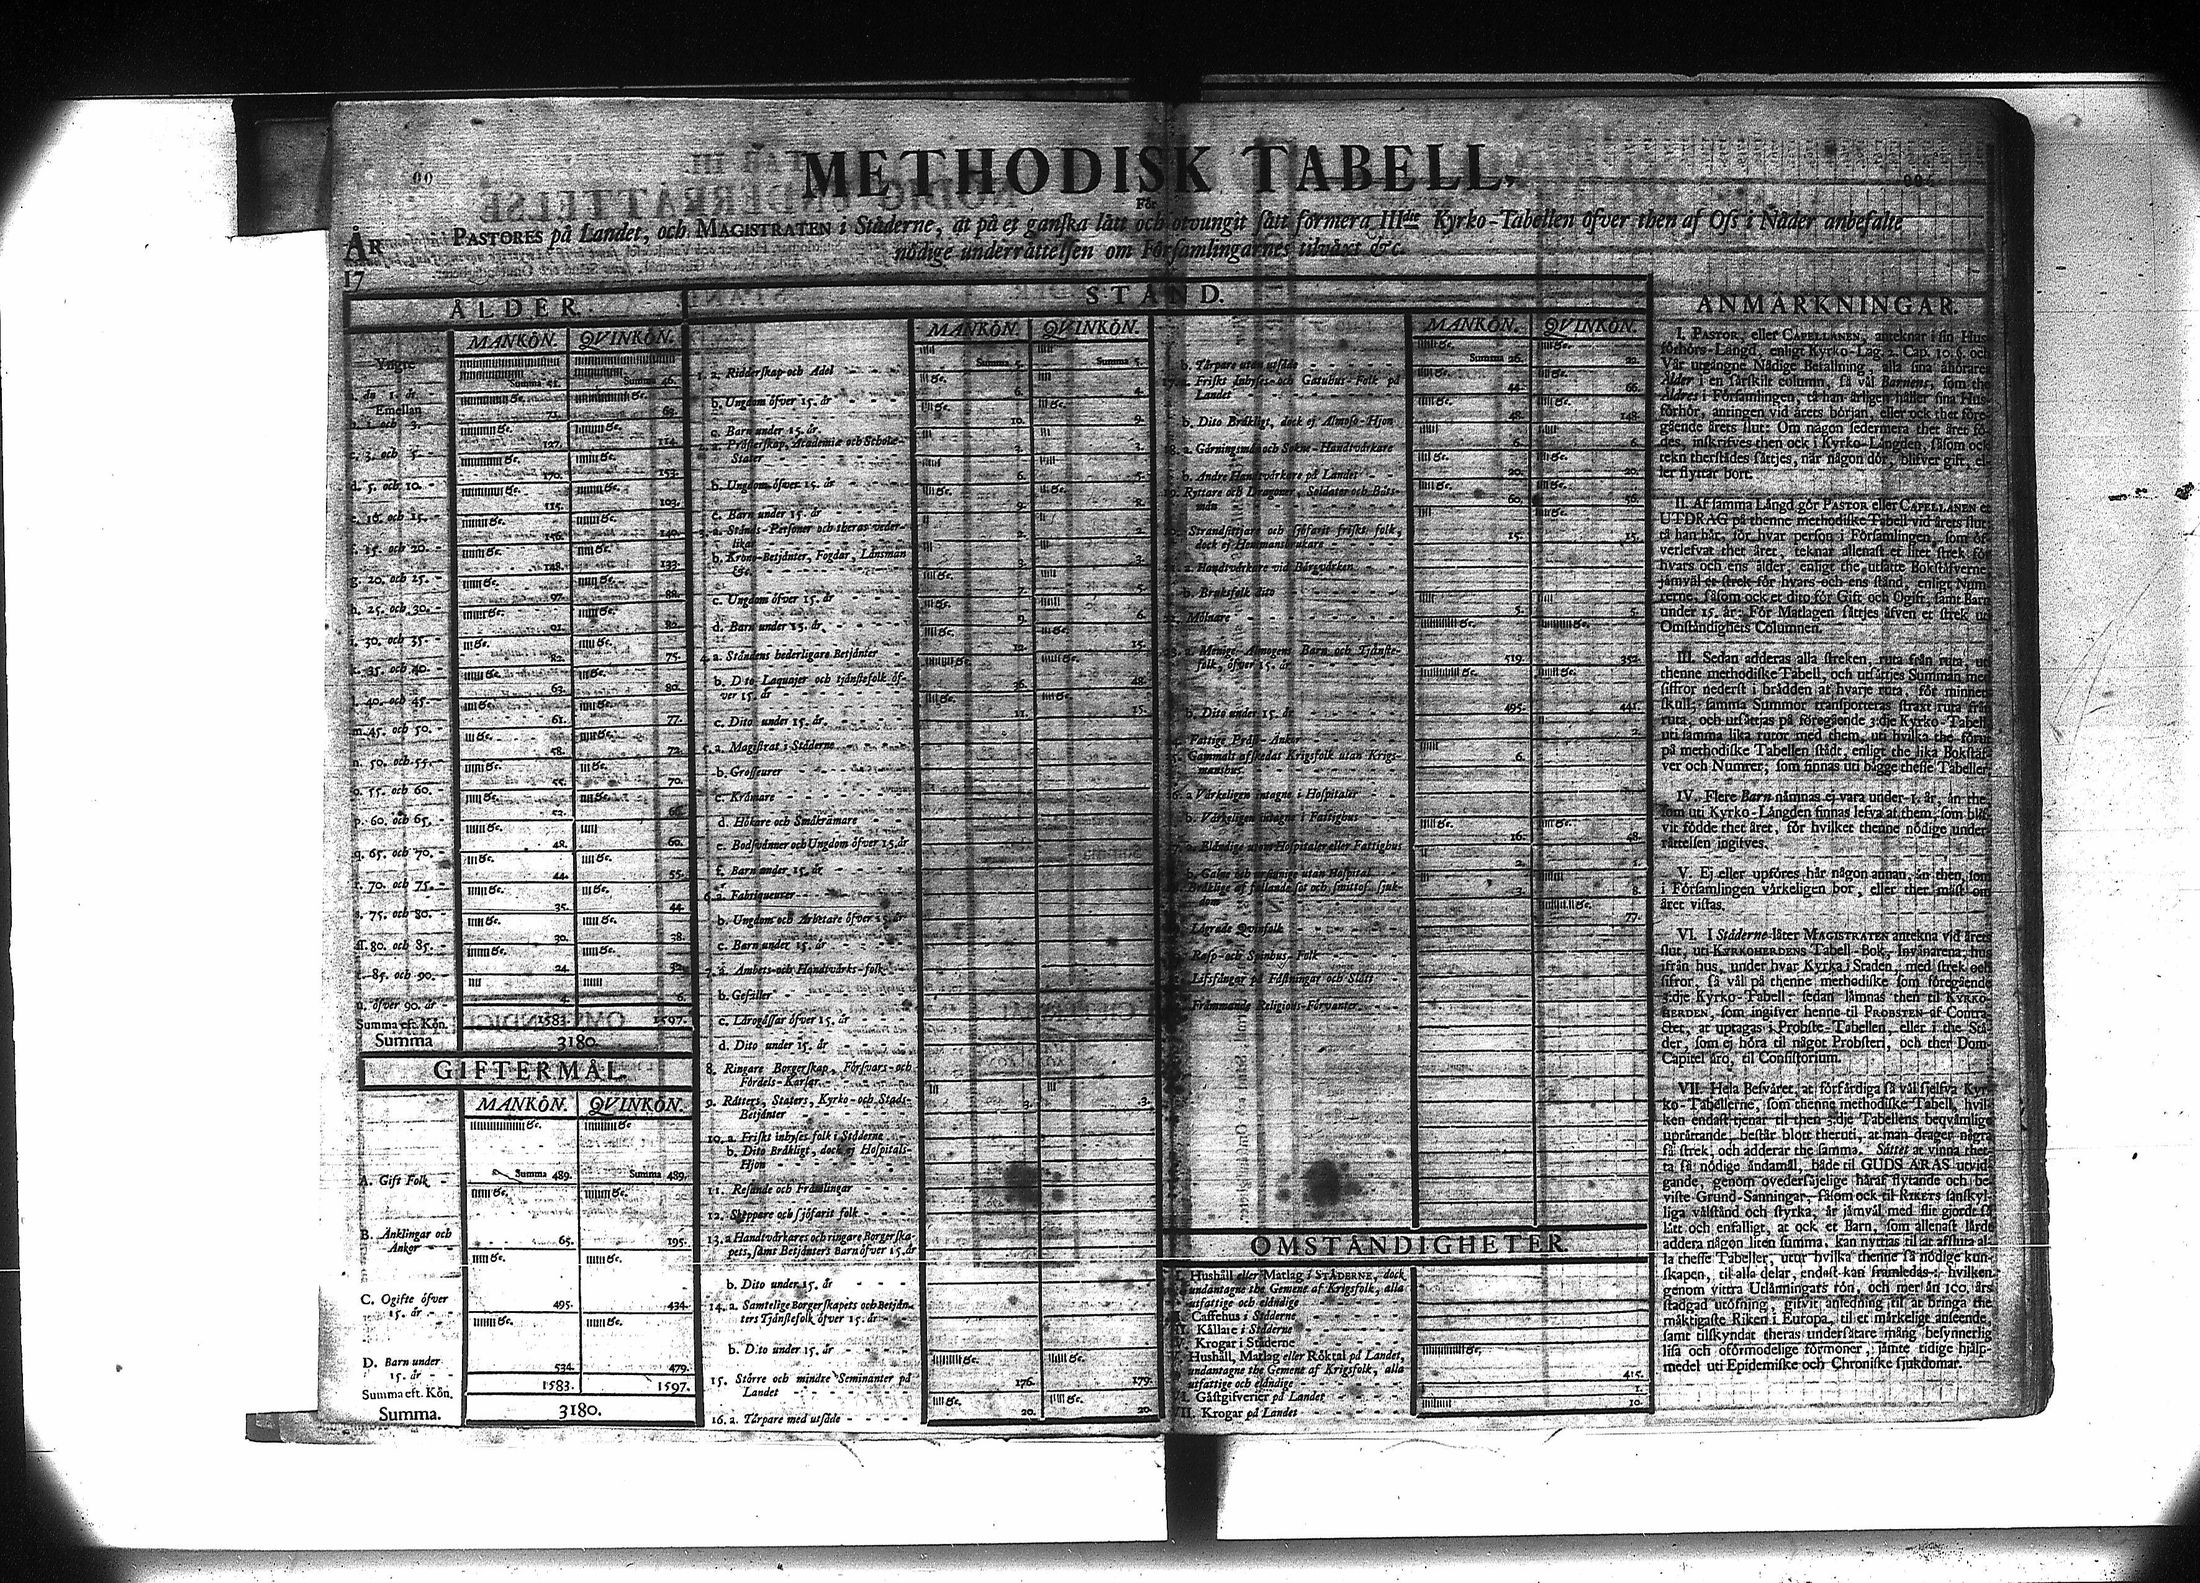 METHODISK TABELL,
För
PASTORES på Landet, och MAGISTRATEN i Städerne, at på et ganska lätt och otvungit sätt formera IIIdie Kyrko-Tabellen öfver then af Oss i Nåder anbefalte
nödige underrättelsen om Församlingarnes tilväxt &c.
ÅR
17
ÅLDER.
MANKÖN. QVINKÖN.
Yngre
än 1. år - Summa 41. Summa 46.
Emellan
b. 1. och 3. 71. 69.
c. 3. och 5. - 127. 114.
d. 5. och 10. - 170. 153.
e. 10. och 15. - 115. 103.
f. 15. och 20. - 156. 140.
g. 20. och 25. - 148. 133.
h. 25. och 30. - 97. 88.
i. 30. och 35. - 91. 82.
k. 35. och 40. - 82. 75.
l. 40. och 45. - 63. 80.
m. 45. och 50. - 61. 77.
n. 50. och 55. - 58. 72.
o. 55. och 60. - 55. 70.
p. 60. och 65. - 52. 66.
q. 65. och 70. - 48. 60.
r. 70. och 75. - 44. 55.
s. 75. och 80. - 35. 44.
ss. 80. och 85. - 30. 38.
t. 85. och 90. - 24. 32.
u. öfver 90. år - 4. 6.
Summa eft. Kön. 1583. 1597.
Summa 3180.
GIFTERMÅL.
MANKÖN. QVINKÖN.
A. Gift Folk - Summa 489. Summa 489.
B. Änklingar och
Änkor - - 65. 195.
C. Ogifte öfver
15. år - - 495. 434.
D. Barn under
15. år - - 534. 479.
Summa eft. Kön. 1583. 1597.
Summa. 3180.
STÅND.
MANKÖN. QVINKÖN.
1. a. Ridderskap och Adel - - - - Summa 5. Summa 5.
b. Ungdom öfver 15. år - - - - 6. 4.
c. Barn under 15. år 10. 9.
2. a. Prästerskap, Academiæ och Scholæ-
Stater - - - - 3. 3.
b. Ungdom öfver 15. år - - - 6. 5.
c. Barn under 15. år - - - 9. 8.
3. a. Stånds-Personer och theras veder-
likar 2. 2.
b. Krono-Betjänter, Fogdar, Länsmän
&c. - - - - 3. 3.
c. Ungdom öfver 15. år - - - 7. 5.
d. Barn under 15. år - - - - 9. 6.
4. a. Ståndens hederligare Betjänter - 12. 15.
b. Dito Laquajer och tjänstefolk öf-
ver 15. år - - - - 36. 48.
c. Dito under 15. år. - - - - 11. 15.
5. a. Magistrat i Städerne - - - -
b. Grosseurer - - - -
c. Krämare - - - -
d. Hökare och Småkrämare - -
e. Bodsvänner och Ungdom öfver 15. år
f. Barn under 15. år - - - -
6. a. Fabriqueurer - - - -
b. Ungdom och Arbetare öfver 15. år
c. Barn under 15. år - - - -
7. a. Ambets- och Handtvärks-folk - -
b. Gesäller - - - -
c. Lärogåssar öfver 15. år - - -
d. Dito under 15. år - - - -
8. Ringare Borgerskap, Försvars- och
Fördels-Karlar - - - -
9. Rätters, Staters, Kyrko- och Stads-
Betjänter - - - - 3. 3.
10. a. Friskt inhyses folk i Städerne - -
b. Dito Bräkligt, dock ej Hospitals-
Hjon - - - -
11. Resande och Främlingar - -
12. Skeppare och sjöfarit folk - - -
13. a Handtvärkares och ringare Borgerska-
pets, samt Betjänters Barn öfver 15. år
b. Dito under 15. år - - - -
14. a. Samtelige Borgerskapets och Betjän-
ters Tjänstefolk öfver 15. år -
b. Dito under 15. år - - - -
15. Större och mindre Seminanter på
Landet - - - - 176. 179.
16. a. Torpare med utsäde - - - - 20. 20.
MANKÖN. QVINKÖN.
b. Torpare utan utsäde - - - Summa 26. 22.
17. a. Friskt Inhyses- och Gatuhus-Folk på
Landet - - - - 44. 66.
b. Dito Bräkligt, dock ej Almoso-Hjon 48. 148.
18. a. Gärningsmän och Sokne-Handtvärkare 6. 6.
b. Andre Handtvärkare på Landet - - 20. 20.
19. Ryttare och Dragoner, Soldater och Båts-
män - - - 60. 56.
Strandsittjare och sjöfarit friskt folk,
dock ej Hemmansbrukare - - 15. 15.
a. Handtvärkare vid Bärgvärken - -
b. Bruksfolk dito - - - -
22. Mölnare - - - - 5. 5.
23. a. Menige Almogens Barn och Tjänste-
folk, öfver 15. år - - - 519. 352.
b. Dito under 15. år - - - 495. 441.
Fattige Präst-Ankor - - - - 2.
Gammalt afskedat Krigsfolk utan Krigs-
manshus. 6.
a Värkeligen intagne i Hospitaler - -
b. Värkeligen intagne i Fattighus - 16. 48.
a. Eländige utom Hospitaler eller Fattighus 2. 1.
b. Galne och ursinnige utan Hospital - 3. 8.
Bräklige af fallande sot och smittos. sjuk-
dom - - - 77.
Lägrade Qvinfolk - - - -
Rasp- och Spinhus-Folk - - -
Lifsfångar på Fästningar och Slått -
Främmande Religions-Förvanter - -
OMSTÄNDIGHETER.
I. Hushåll eller Matlag i STÄDERNE, dock
undantagne the Gemene af Krigsfolk, alla
utfattige och eländige - - - -
Caffehus i Städerne - - - -
III. Källare i Städerne - - - -
Krogar i Städerne - - - -
V. Hushåll, Matlag eller Röktal på Landet,
undantagne the Gemene af Krigsfolk, alla
utfattige och eländige - - - - 415.
VI. Gästgifverier på Landet - - - 1.
VII. Krogar på Landet - - - - 10.
ANMÄRKNINGAR.
I. PASTOR, eller CAPELLANEN, anteknar i sin Hus
förhörs-Längd, enligt Kyrko-Lag. 2. Cap. 10. §. och
Vår utgångne Nådige Befallning, alla sina åhörares
Ålder i en särskilt column, så väl Barnens, som the
Äldres i Församlingen, tå han årligen håller sina Hus-
förhör, antingen vid årets början, eller ock thet före-
gående årets slut: Om någon sedermera thet året fö-
des, inskrifves then ock i Kyrko-Längden, såsom ock
tekn therstädes sättjes, när någon dör, blifver gift, el-
ler flyttar bort.
II. Af samma Längd gör PASTOR eller CAPELLANEN et
UTDRAG på thenne methodiske Tabell vid årets slut:
tå han här, för hvar person i Församlingen, som öf-
verlefvat thet året, teknar allenast et litet strek för
hvars och ens ålder, enligt the utsatte Bokstäfverne
jämväl et strek för hvars och ens stånd, enligt Num-
rerne, såsom ock et dito för Gift och Ogift, samt Barn
under 15. år: För Matlagen sättjes äfven et strek uti
Omständighets Columnen.
III. Sedan adderas alla streken, ruta från ruta, uti
thenne methodiske Tabell, och utsättjes Summan med
siffror nederst i brädden at hvarje ruta, för minnet
skull; samma Summor transporteras straxt ruta från
ruta, och utsättjas på föregående 3:die Kyrko-Tabell,
uti samma lika rutor med them, uti hvilka the förut
på methodiske Tabellen stådt, enligt the lika Bokstäf-
ver och Numrer, som finnas uti bägge thesse Tabeller.
IV. Flere Barn nämnas ej vara under 1. år, än the
som uti Kyrko-Längden finnas lefva at them, som blif-
vit födde thet året, för hvilket thenne nödige under-
rättelsen ingifves.
V. Ej eller upföres här någon annan, än then, som
i Församlingen värkeligen bor, eller ther mäst om
året vistas.
VI. I Städerne låter MAGISTRATEN antekna vid årets
slut, uti KYRKOHERDENS Tabell-Bok, Invånarena, hus
ifrån hus, under hvar Kyrka i Staden, med strek och
siffror, så väl på thenne methodiske som föregående
3:die Kyrko-Tabell: sedan lämnas then til KYRKO-
HERDEN, som ingifver henne til PROBSTEN af Contra-
ctet, at uptagas i Probste-Tabellen, eller i the Stä-
der, som ej höra til något Probsteri, och ther Dom-
Capitel äro, til Consistorium.
VII. Hela Besväret, at förfärdiga så väl sjelfva Kyr-
ko-Tabellerne, som thenne methodiske Tabell, hvil-
ken endast tjenar til then 3:die Tabellens beqvämlige
uprättande, består blott theruti, at man drager några
få strek, och adderar the samma. Sättet at vinna thet-
ta så nödige ändamål, både til GUDS ÄRAS utvid-
gande, genom ovedersäjelige häraf flytande och be-
viste Grund-Sanningar, såsom ock til RIKETS sanskyl-
liga välstånd och styrka, är jämväl med flit gjordt så
lätt och enfalligt, at ock et Barn, som allenast lärdt
addera någon liten summa, kan nyttjas til at afsluta al-
la thesse Tabeller, utur hvilka thenne så nödige kun-
skapen, til alla delar, endast kan framledas: hvilken
genom vittra Utlänningars rön, och mer än 100. års
stadgad utöfning, gifvit anledning til at bringa the
mäktigaste Riken i Europa, til et märkeligt anseende,
samt tilskyndat theras undersåtare mång besynnerlig
lisa och oförmodelige förmoner, jämte tidige hjälp-
medel uti Epidemiske och Chroniske sjukdomar.